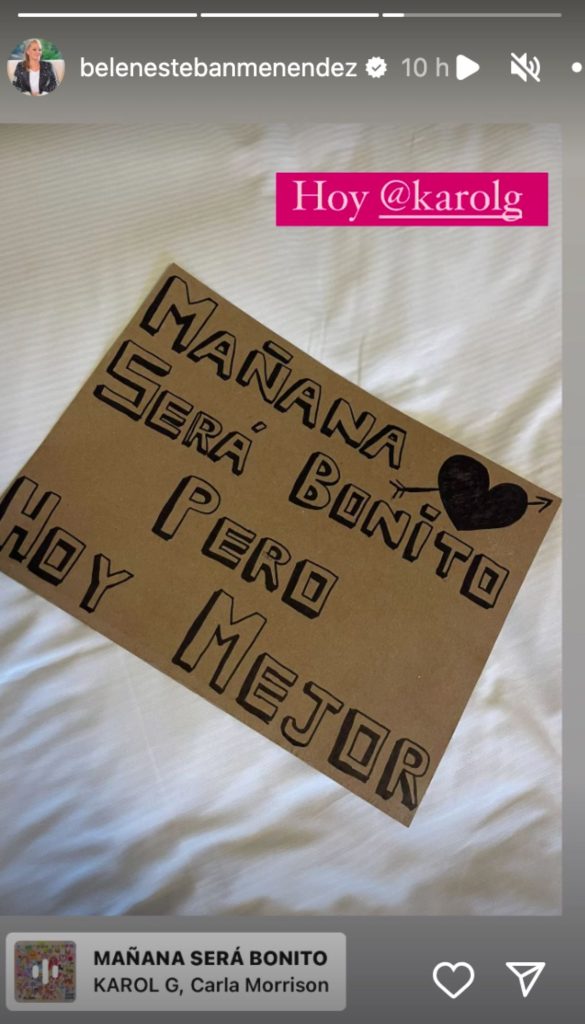 belenestebanmenendez 10 h
Hoy @karolg
MAÑANA
SERÁ BONITO
PERO
HOY MEJOR
MAÑANA SERÁ BONITO
KAROL G, Carla Morrison